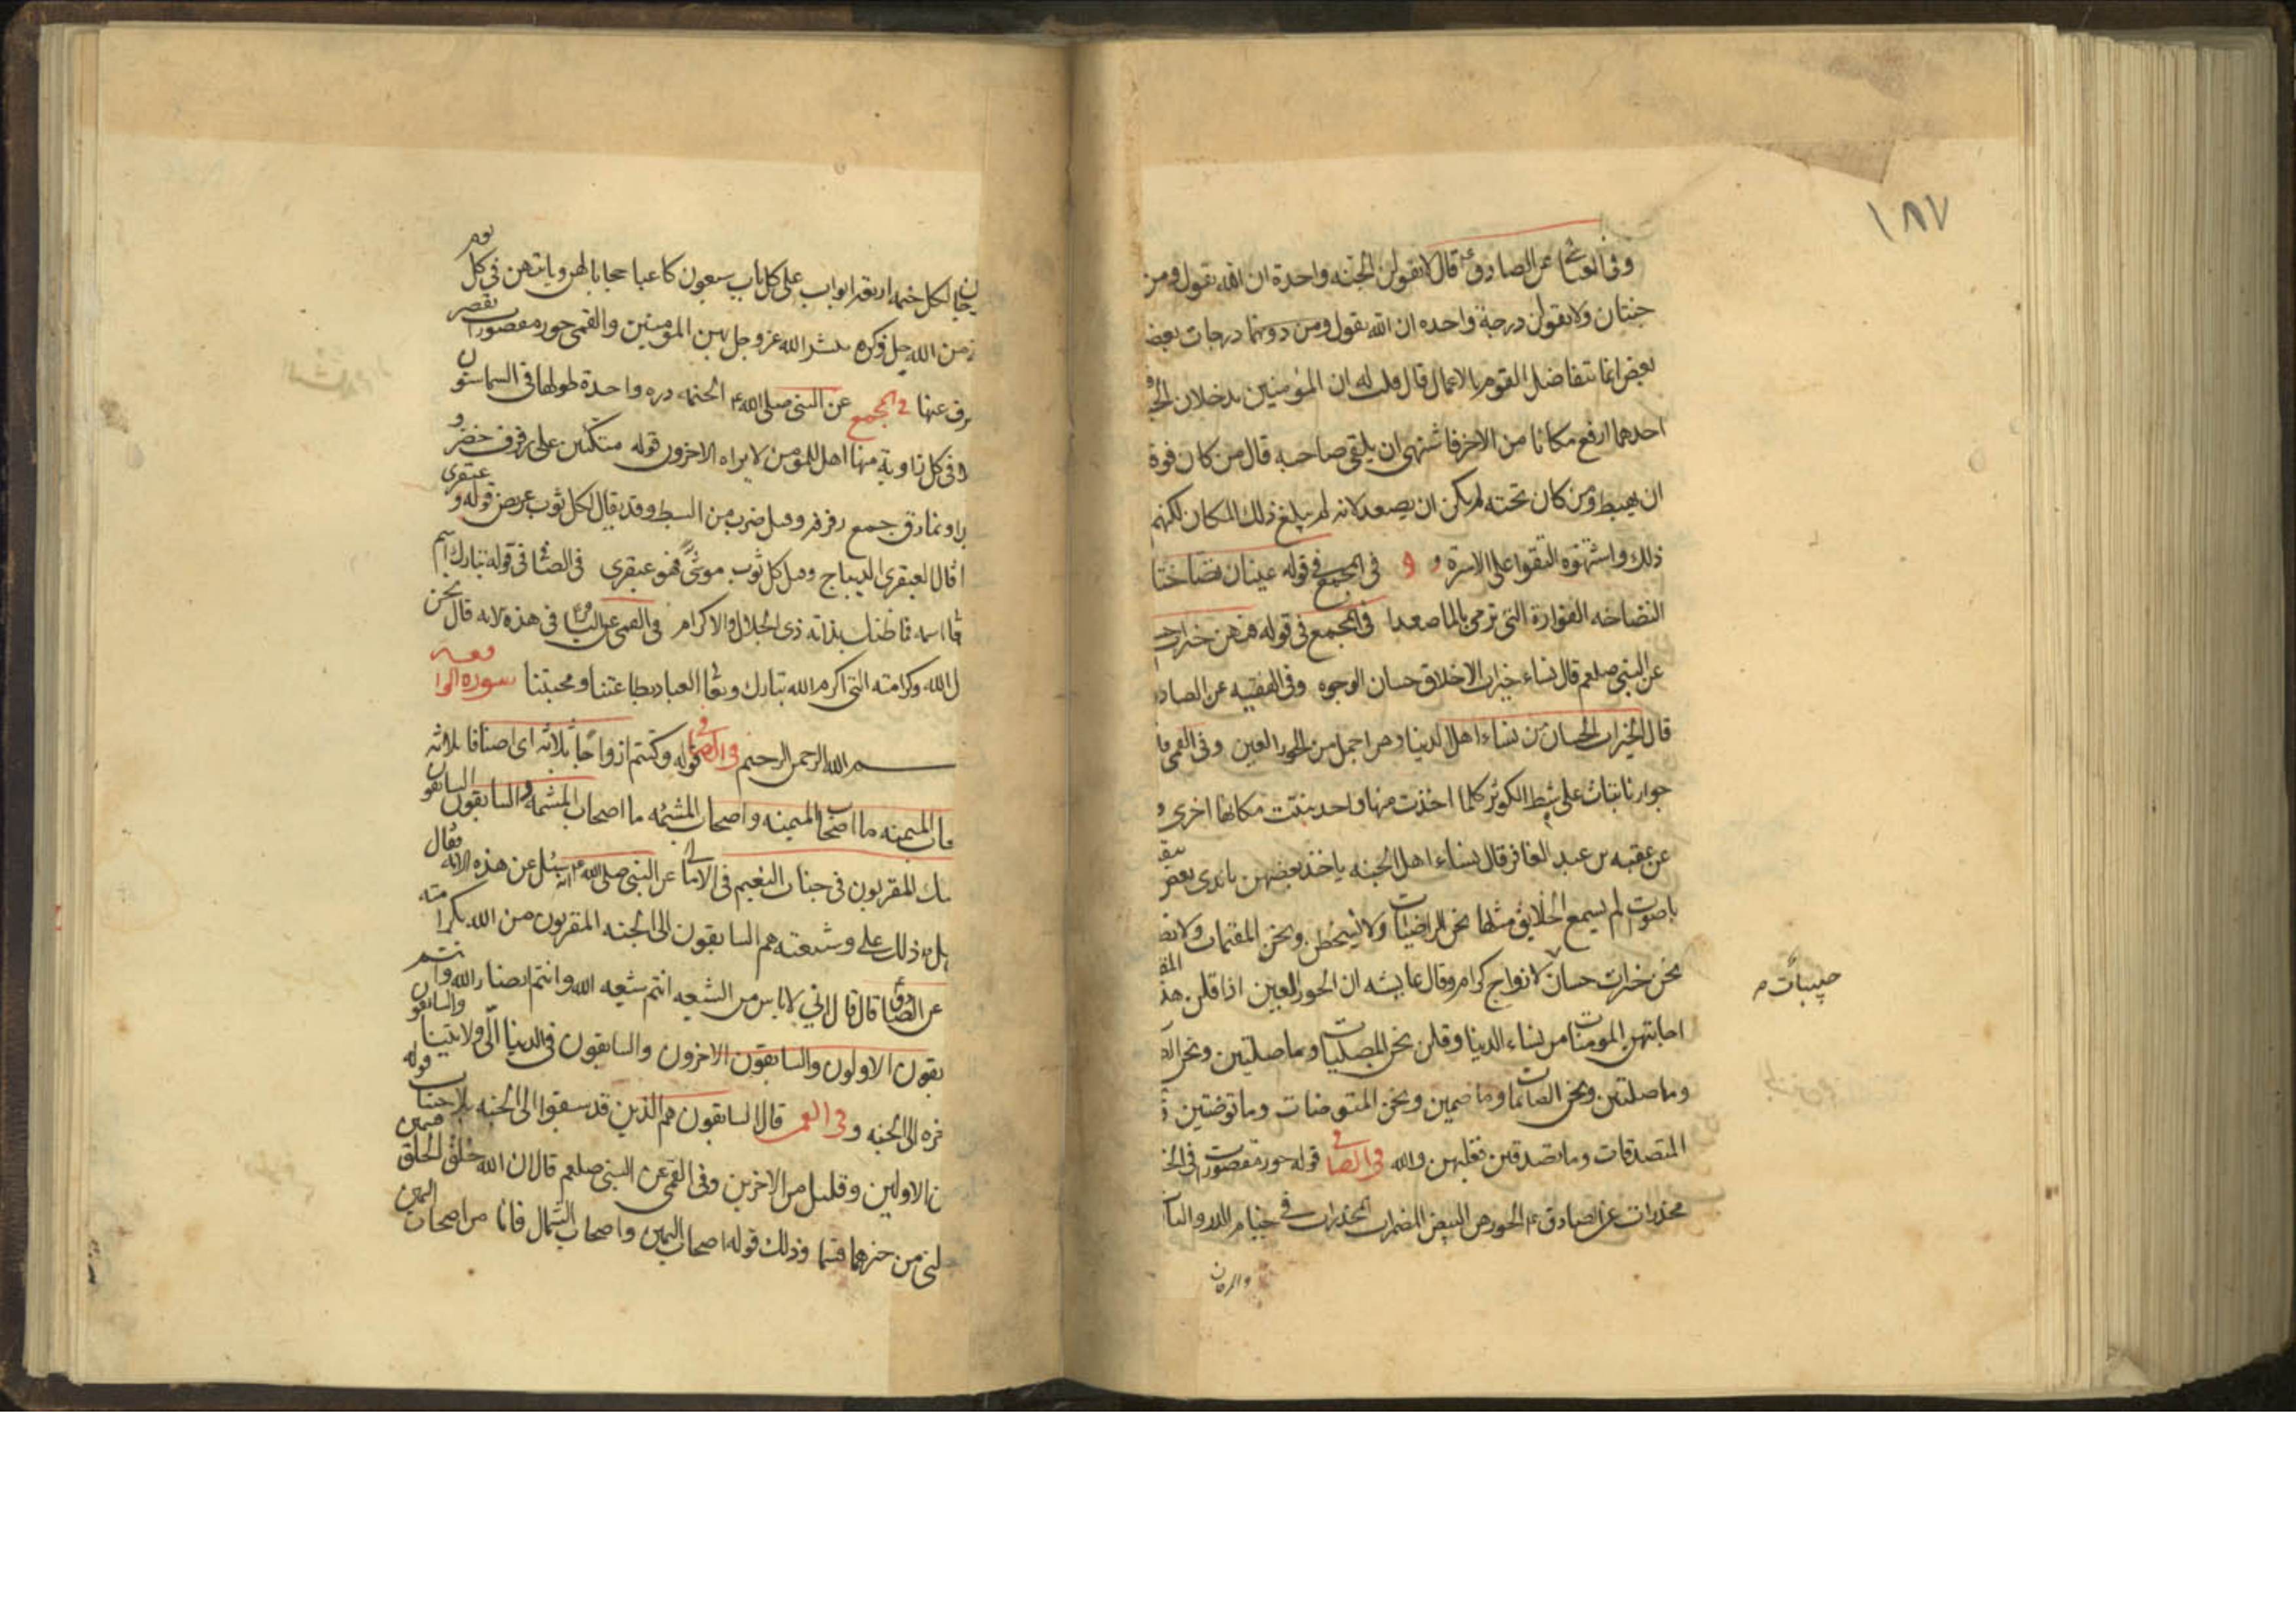 ١٨٧
وفى العياشى عن الصادق ع قال لا تقولن الجنه واحدة ان الله يقول ومن
جنتان ولا تقولن درجة واحده ان الله يقول ومن دونهما درجات بعض
بعض انما يتفاضل القوم بالاعمال قال قلت له ان المؤمنين يدخلان
احدهما ارفع مكانا من الاخر فاشتهى ان يلقى صاحبه قال من كان فوقه
ان يهبط ومن كان تحته لم يكن ان يصعد لانه لم يبلغ ذلك المكان لكنهم
ذلك واشتهوه التقوا على الاسرة و فى المجمع فى قوله عينان نضاختا
النضاخه الفوارة التى ترمى بالماء صعدا فى المجمع فى قوله فيهن خيرات
عن النبى صلعم قال نساء خيرات الاخلاق حسان الوجوه وفى الفقيه عن الصاد
قال الخيرات الحسان من نساء اهل الدنيا وهن اجمل من الحور العين وفى القمى قا
جوار نابتات على شط الكوثر كلما اخذت منها واحد نبتت مكانها اخرى و
عن عقبه بن عبد الغافر قال نساء اهل الجنه ياخذ بعضهن بايدى بعض
باصوت لم يسمع الخلايق مثلها نحن الراضيات ولا نسخط ونحن المقيمات ولا
نحن خيرات حسان لازواج كرام وقال عايشه ان الحور العين اذا قلن هذ
حبيبات م
اجابتهن المومنات من نساء الدنيا وقلن نحن المصليات وما صليتن ونحن
وما صليتن ونحن الصائمات وما صمتن ونحن المتوضئات وما توضئتن
المتصدقات وما تصدقتن فغلبهن والله فى الصافى قوله حور مقصورات فى الخ
مخدرات عن الصادق ع الحور هن البيض المضمرات المخدرات فى خيام الدر واليا
والمرجان
ن لكل خيمه اربعة ابواب على كل باب سبعون كاعبا حجابا لهن وياتيهن فى كل يوم
من الله جل ذكره يبشر الله عز وجل بهن المؤمنين والقمى حور مقصورات يقصر
رف عنها فى المجمع عن النبى صلى الله الخيمه دره واحدة طولها فى السما ستون
وفى كل زاوية منها اهل للمؤمن لا يراه الاخرون قوله متكئين على رفرف خضر و
ونمارق جمع رفرفه وقيل ضرب من البسط وقد يقال لكل ثوب عريض قوله وعبقرى
قال العبقرى الديباج وقيل كل ثوب موشى فهو عبقرى فى الصافى فى قوله تبارك اسم
اسمه فما ظنك بذاته ذى الجلال والاكرام فى القمى عن الباقر فى هذه الايه قال نحن
ل الله وكرامته التى اكرم الله تبارك وتعا العباد بطاعتنا ومحبتنا سورة الواقعه
بسم الله الرحمن الرحيم فى الصافى قوله وكنتم ازواجا ثلاثه اى اصنافا ثلاثه
الميمنه ما اصحاب الميمنه واصحاب المشئمه ما اصحاب المشئمه والسابقون السابقون
ئك المقربون فى جنات النعيم فى الامالى عن النبى صلى الله انه سئل عن هذه الايه فقال
ذلك على وشيعته هم السابقون الى الجنه المقربون من الله بكرامته
عن الصادق قال قال ابى لاناس من الشيعه انتم شيعه الله وانتم انصار الله وانتم
بقون الاولون والسابقون الاخرون والسابقون فى الدنيا الى ولايتنا والسابقون
خره الى الجنه وفى القمى قال السابقون هم الذين قد سبقوا الى الجنه بلا حساب قوله
ن الاولين وقليل من الاخرين وفى القمى عن النبى صلعم قال ان الله خلق الخلق قسمين
لنى من خيرهما قسما وذلك قوله اصحاب اليمين واصحاب الشمال فانا من اصحاب اليمين